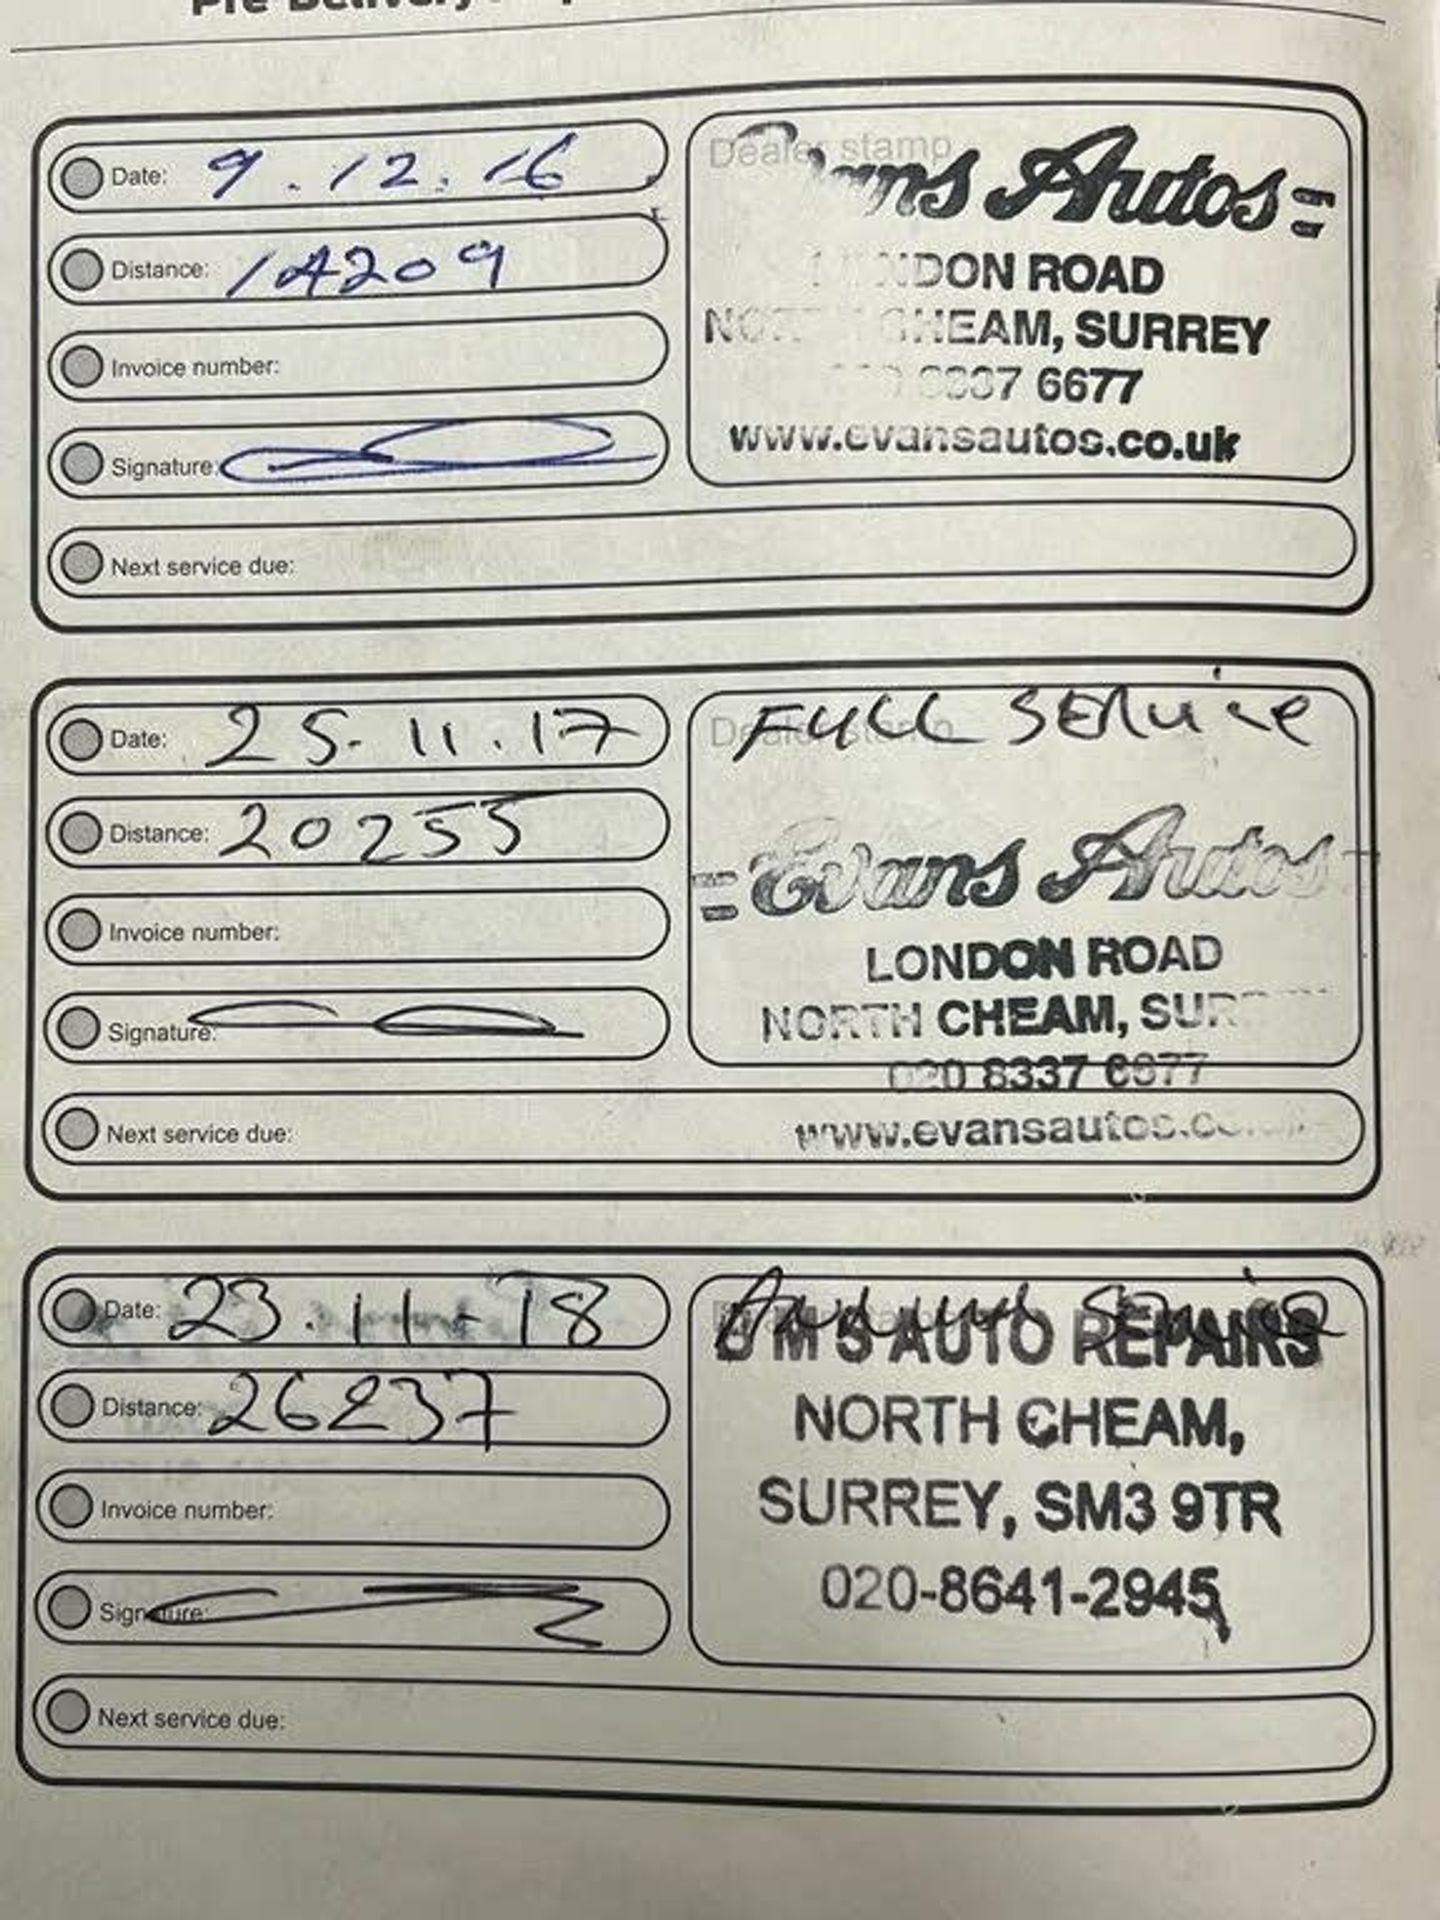 Date: 9.12.16
Distance: 14209
Invoice number:
Signature:
Next service due:
Dealer stamp
Autos
ROAD
CHEAM, SURREY
6677
www.evansautos.co.uk
Date: 25.11.17
Distance: 20255
Invoice number:
Signature:
Next service due:
FULL SERVICE
Dealer stamp
Evans Autos
LONDON ROAD
NORTH CHEAM,
020 8337 6677
Date: 23.11.18
Distance: 26237
Invoice number:
Signature:
Next service due:
Service
M S AUTO REPAIRS
NORTH CHEAM,
SURREY, SM3 9TR
020-8641-2945